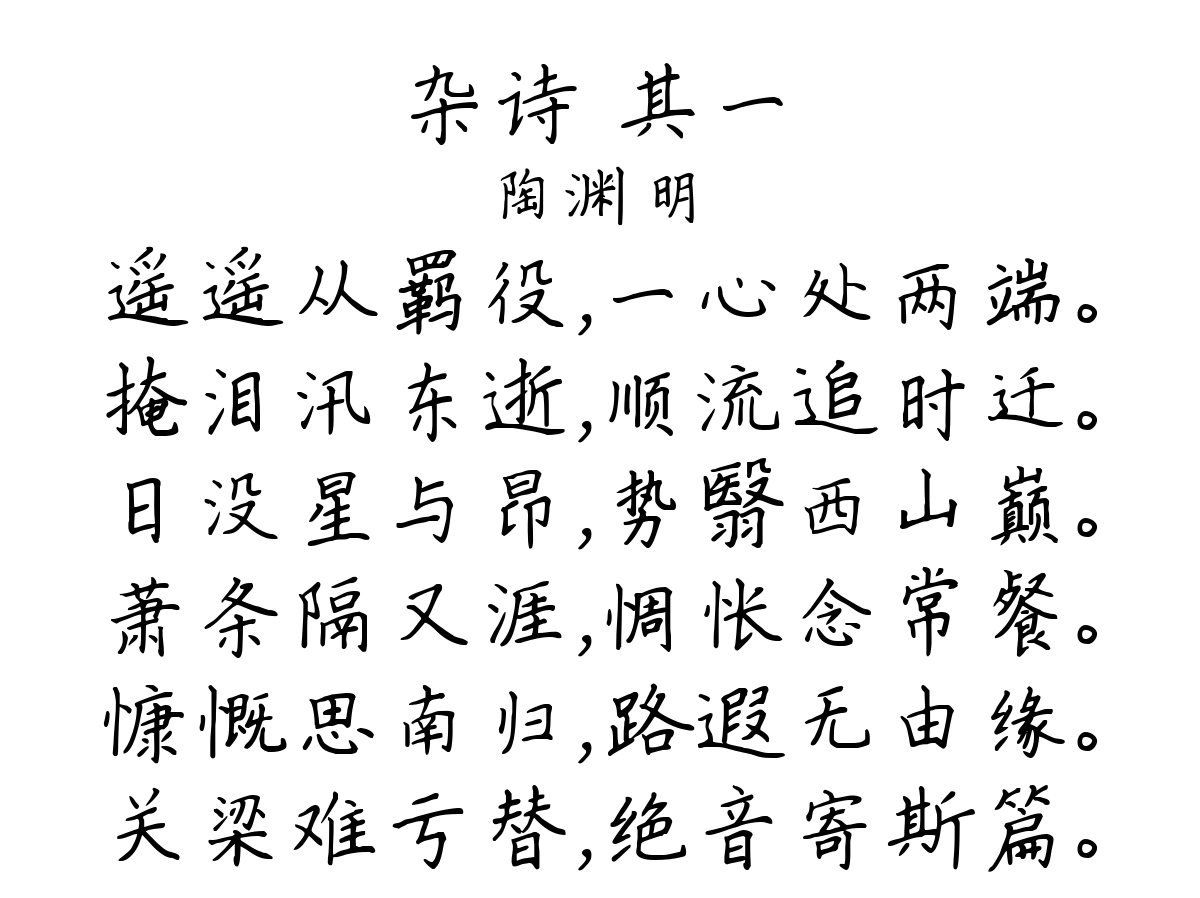 杂诗 其一
陶渊明
遥遥从羁役,一心处两端。
掩泪汛东逝,顺流追时迁。
日没星与昂,势翳西山巅。
萧条隔又涯,惆怅念常餐。
慷慨思南归,路遐无由缘。
关梁难亏替,绝音寄斯篇。